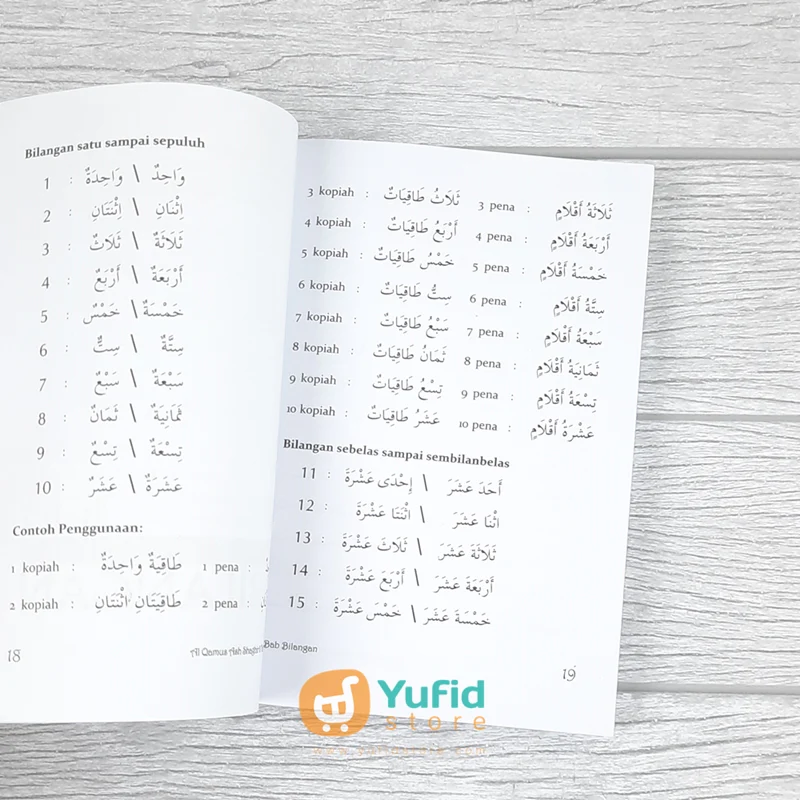 Bilangan satu sampai sepuluh
1 : وَاحِدٌ \ وَاحِدَةٌ
2 : اِثْنَانِ \ اِثْنَتَانِ
3 : ثَلَاثَةٌ \ ثَلَاثٌ
4 : أَرْبَعَةٌ \ أَرْبَعٌ
5 : خَمْسَةٌ \ خَمْسٌ
6 : سِتَّةٌ \ سِتٌّ
7 : سَبْعَةٌ \ سَبْعٌ
8 : ثَمَانِيَةٌ \ ثَمَانٌ
9 : تِسْعَةٌ \ تِسْعٌ
10 : عَشَرَةٌ \ عَشَرٌ
Contoh Penggunaan:
1 kopiah : طَاقِيَةٌ وَاحِدَةٌ 1 pena :
2 kopiah : طَاقِيَتَانِ اثْنَتَانِ 2 pena :
18 Al Qamus Ash
3 kopiah : ثَلَاثُ طَاقِيَاتٌ 3 pena : ثَلَاثَةُ أَقْلَامٍ
4 kopiah : أَرْبَعُ طَاقِيَاتٌ 4 pena : أَرْبَعَةُ أَقْلَامٍ
5 kopiah : خَمْسُ طَاقِيَاتٌ 5 pena : خَمْسَةُ أَقْلَامٍ
6 kopiah : سِتُّ طَاقِيَاتٌ 6 pena : سِتَّةُ أَقْلَامٍ
7 kopiah : سَبْعُ طَاقِيَاتٌ 7 pena : سَبْعَةُ أَقْلَامٍ
8 kopiah : ثَمَانُ طَاقِيَاتٌ 8 pena : ثَمَانِيَةُ أَقْلَامٍ
9 kopiah : تِسْعُ طَاقِيَاتٌ 9 pena : تِسْعَةُ أَقْلَامٍ
10 kopiah : عَشَرُ طَاقِيَاتٌ 10 pena : عَشْرَةُ أَقْلَامٍ
Bilangan sebelas sampai sembilanbelas
11 : أَحَدَ عَشَرَ \ إِحْدَى عَشْرَةَ
12 : اثْنَا عَشَرَ \ اثْنَتَا عَشْرَةَ
13 : ثَلَاثَةَ عَشَرَ \ ثَلَاثَ عَشْرَةَ
14 : أَرْبَعَةَ عَشَرَ \ أَرْبَعَ عَشْرَةَ
15 : خَمْسَةَ عَشَرَ \ خَمْسَ عَشْرَةَ
Bab Bilangan 19
Yufid
store